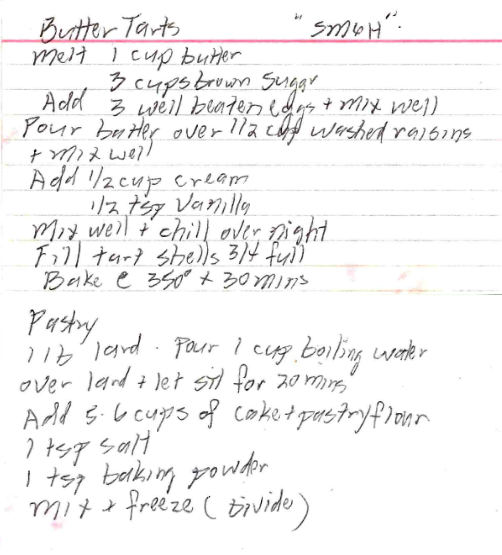 Butter Tarts "SM6H".
Melt 1 cup butter
3 cups brown sugar
Add 3 well beaten eggs + mix well
Pour batter over 1 1/2 cup washed raisins
+ mix well
Add 1/2 cup cream
1/2 tsp Vanilla
Mix well + chill over night
Fill tart shells 3/4 full
Bake @ 350° x 30 mins
Pastry
1 lb lard. Pour 1 cup boiling water
over lard + let sit for 20 mins
Add 5-6 cups of cake + pastry flour
1 tsp salt
1 tsp baking powder
Mix + freeze (divide)